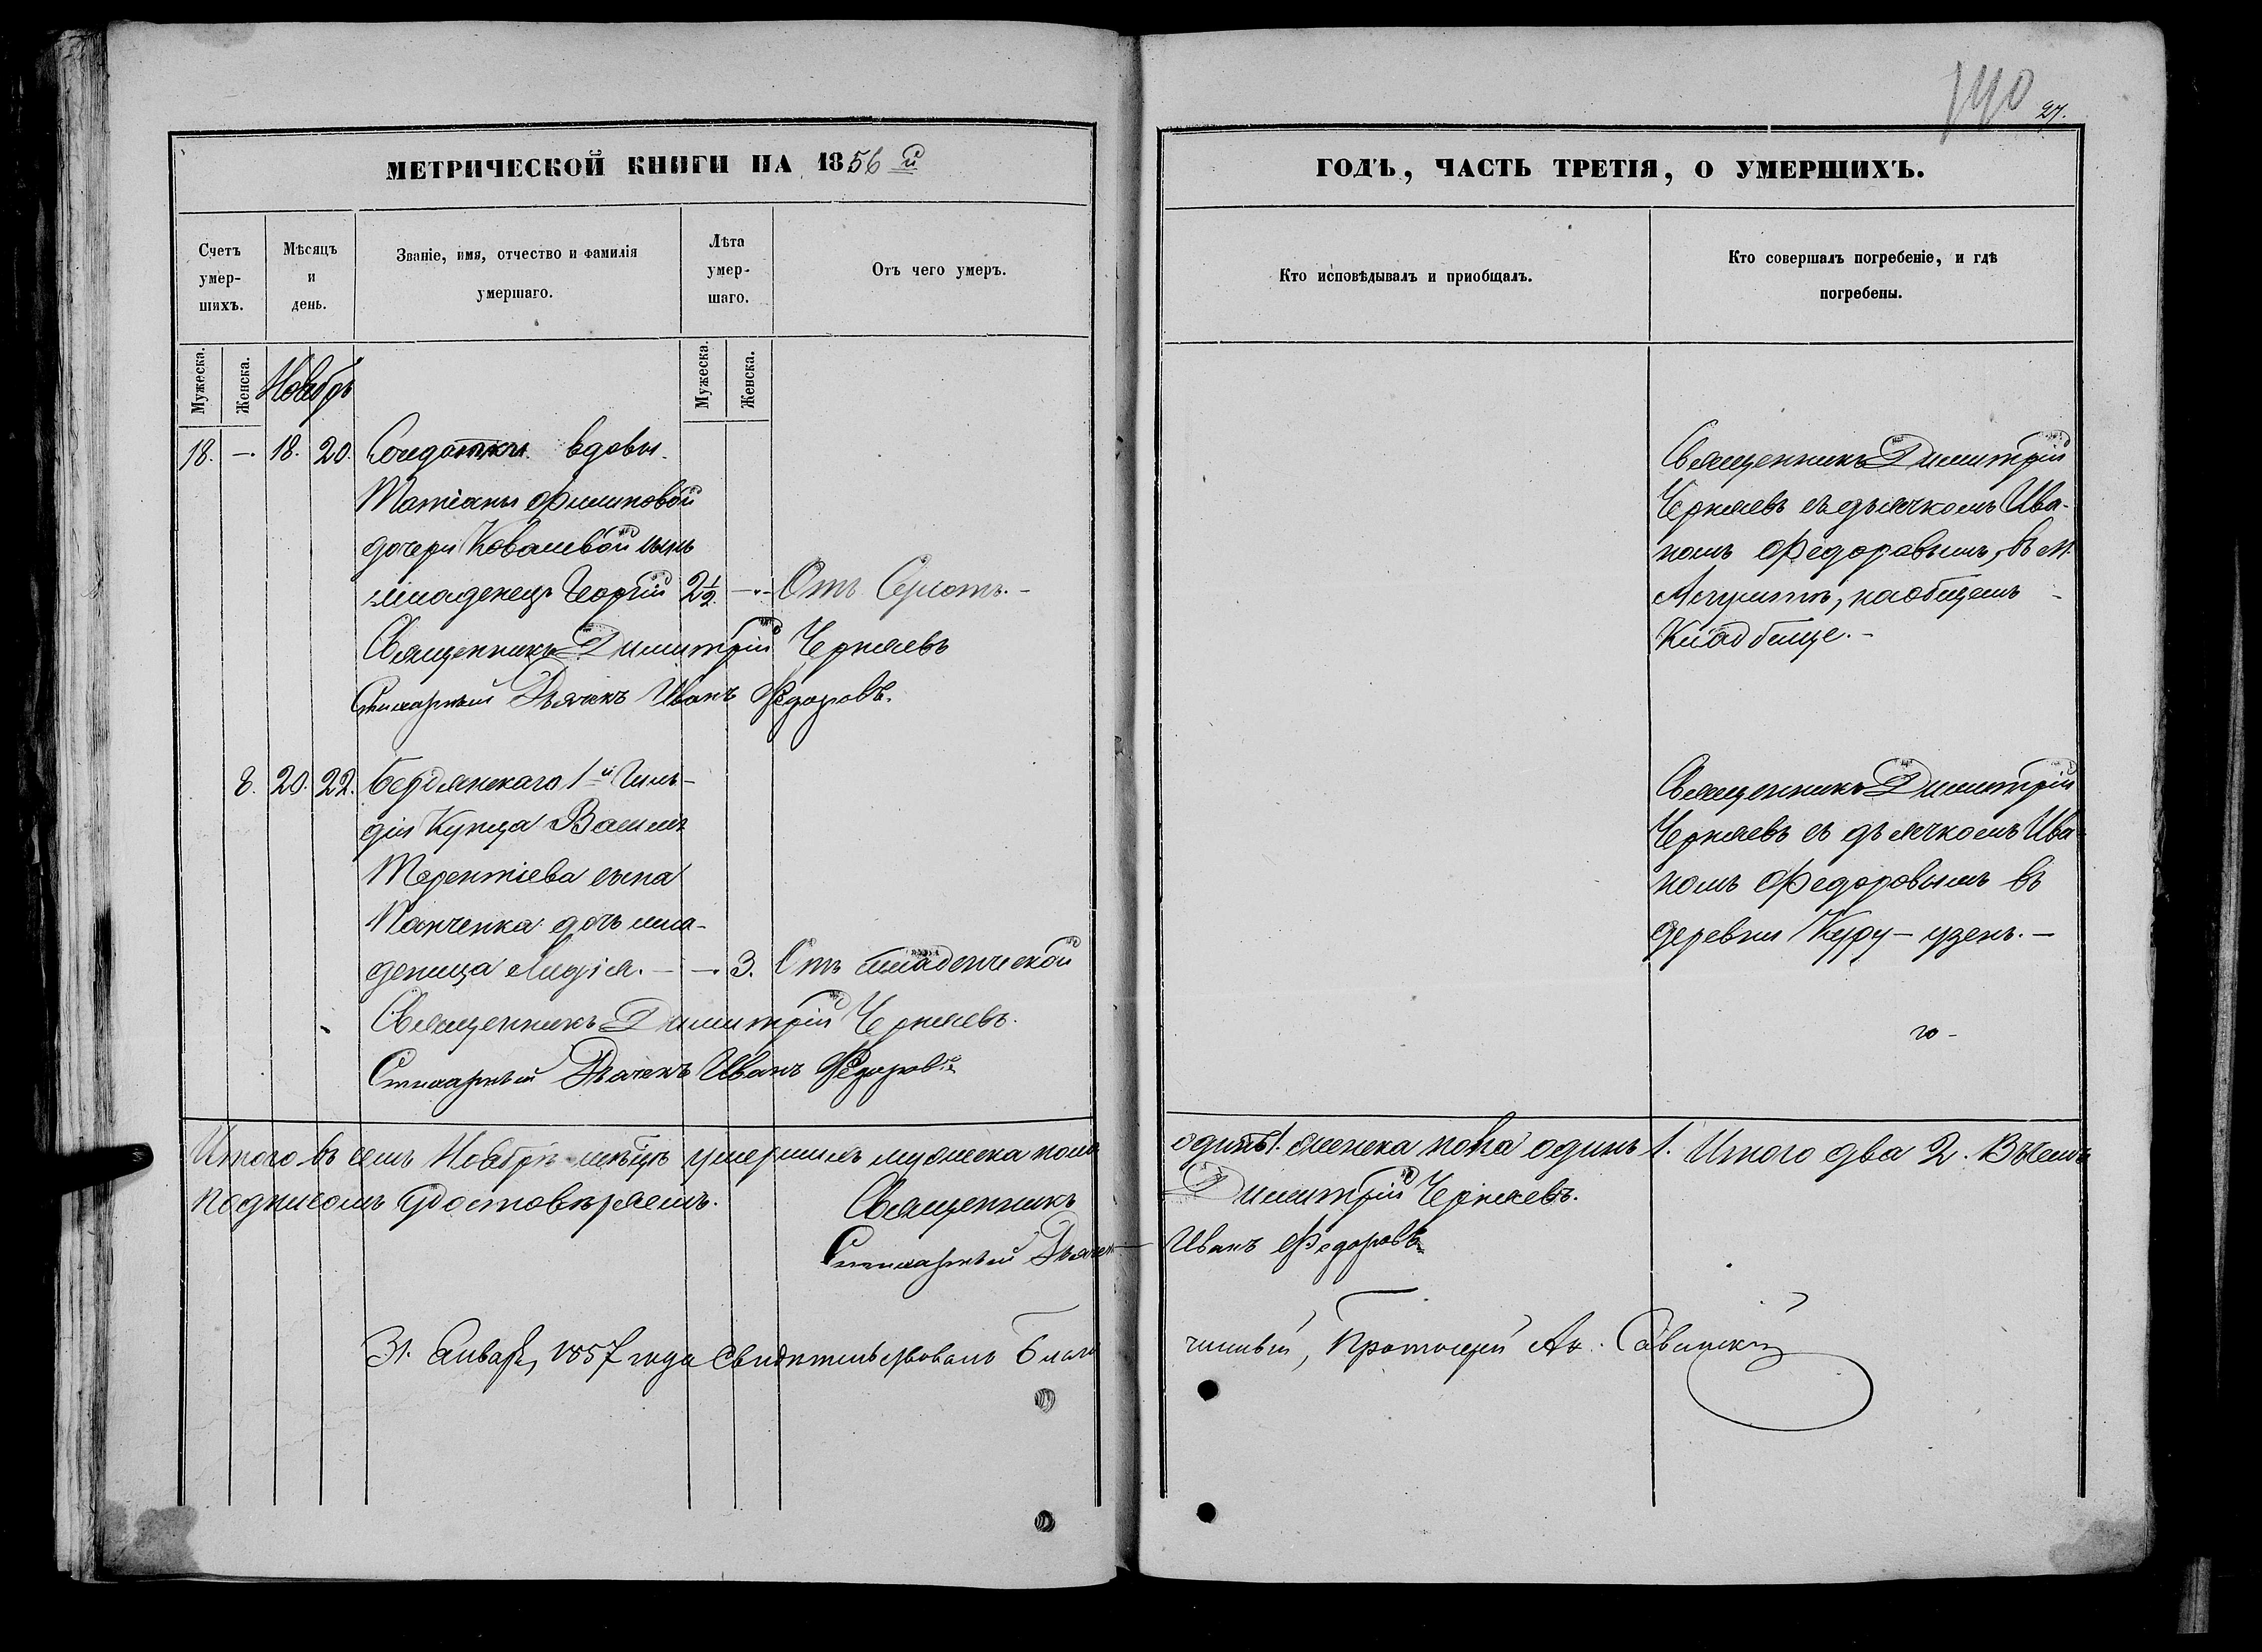 140
27.
МЕТРИЧЕСКОЙ КНИГИ НА 1856й
ГОДЪ, ЧАСТЬ ТРЕТІЯ, О УМЕРШИХЪ.
Счетъ умер-шихъ.
Мѣсяцъ и день.
Званіе, имя, отчество и фамилія умершаго.
Лѣта умер-шаго.
Отъ чего умеръ.
Кто исповѣдывалъ и приобщалъ.
Кто совершалъ погребеніе, и гдѣ погребены.
Мужеска. Женска.
Мужеска. Женска.
Ноябрь
18. —. 18. 20. Солдатки вдовы
Татіаны Филиповой
дочери Ковалевой сынъ
младенецъ Георгій 2½ —„— Отъ
Священникъ Димитрій Черняевъ
Стихарный Дьячекъ Иванъ Федоровъ.
Священникъ Димитрій
Черняевъ съ дьячкомъ Ива-
номъ Федоровымъ, въ м.
Алуштѣ, на общемъ
Кладбище. —
8. 20. 22. Бердянскаго 1й Гиль-
діи Купца Василія
Терентіева сына
Панченка дочь мла-
деница Лидія. — —. 3. Отъ младенческой
Священникъ Димитрій Черняевъ.
Стихарный Дьячекъ Иванъ Федоровъ
Священникъ Димитрій
Черняевъ съ дьячкомъ Ива-
номъ Федоровымъ въ
деревни Куру-узень. —
го -
Итого въ семъ Ноябрѣ мѣсяцѣ умершихъ мужеска пола одинъ 1. женска пола одинъ 1. Итого два 2. Въ чемъ
подписомъ удостовѣряемъ. Священникъ Димитрій Черняевъ.
Стихарный Дьячекъ — Иванъ Федоровъ
31. Январ, 1857 года Свидѣтельствовалъ Благочинный, Протоіерей